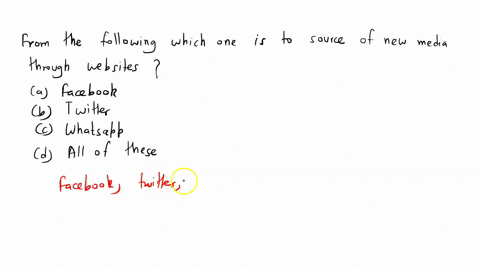 From the following which one is to source of new media
through websites ?
(a) Facebook
(b) Twitter
(c) Whatsapp
(d) All of these
facebook, twitter,